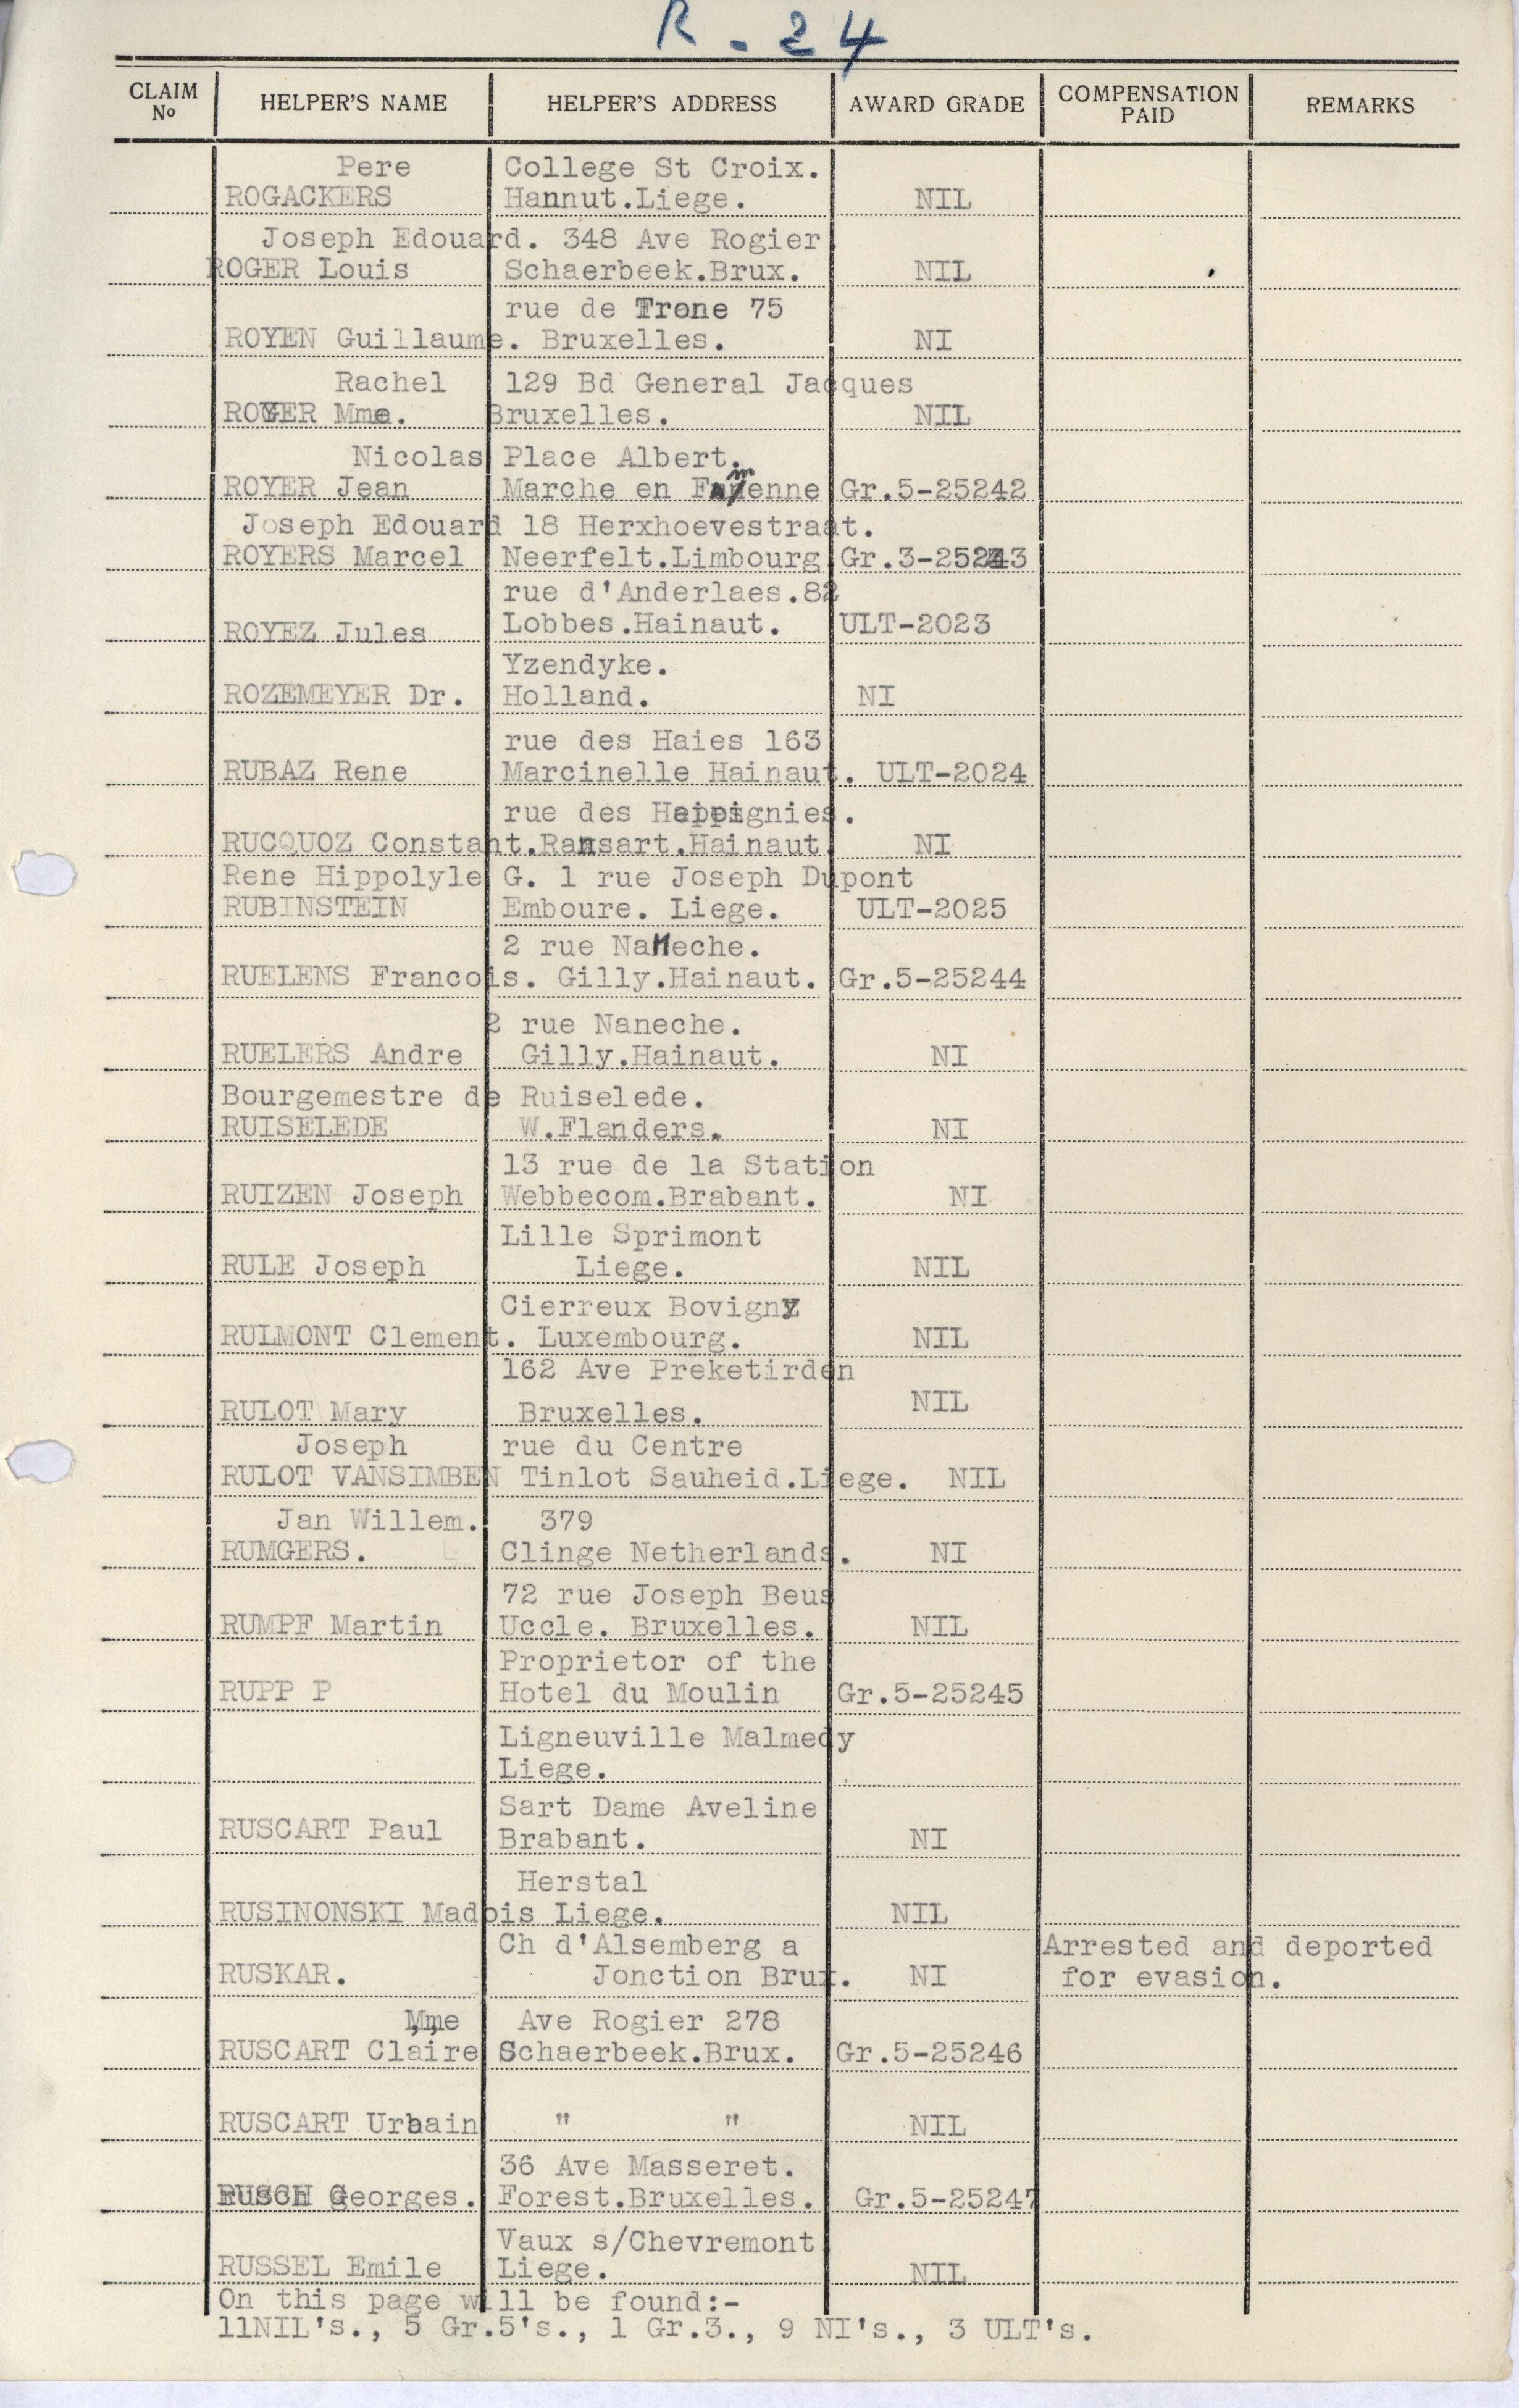 R. 24
CLAIM No HELPER'S NAME HELPER'S ADDRESS AWARD GRADE COMPENSATION PAID REMARKS
Pere College St Croix.
ROGACKERS Hannut.Liege. NIL
Joseph Edouard. 348 Ave Rogier
ROGER Louis Schaerbeek.Brux. NIL
rue de Trone 75
ROYEN Guillaume. Bruxelles. NI
Rachel 129 Bd General Jacques
ROYER Mme. Bruxelles. NIL
Nicolas Place Albert.
ROYER Jean Marche en Famenne Gr.5-25242
Joseph Edouard 18 Herxhoevestraat.
ROYERS Marcel Neerfelt.Limbourg Gr.3-25243
rue d'Anderlaes.82
ROYEZ Jules Lobbes.Hainaut. ULT-2023
Yzendyke.
ROZEMEYER Dr. Holland. NI
rue des Haies 163
RUBAZ Rene Marcinelle Hainaut. ULT-2024
rue des
RUCQUOZ Constant.Ransart.Hainaut. NI
Rene Hippolyle G. 1 rue Joseph Dupont
RUBINSTEIN Emboure. Liege. ULT-2025
2 rue NaMeche.
RUELENS Francois. Gilly.Hainaut. Gr.5-25244
2 rue Naneche.
RUELERS Andre Gilly.Hainaut. NI
Bourgemestre de Ruiselede.
RUISELEDE W.Flanders. NI
13 rue de la Station
RUIZEN Joseph Webbecom.Brabant. NI
Lille Sprimont
RULE Joseph Liege. NIL
Cierreux Bovigny
RULMONT Clement. Luxembourg. NIL
162 Ave Preketirden
RULOT Mary Bruxelles. NIL
Joseph rue du Centre
RULOT VANSIMBEN Tinlot Sauheid.Liege. NIL
Jan Willem. 379
RUMGERS. Clinge Netherlands. NI
72 rue Joseph Beus
RUMPF Martin Uccle. Bruxelles. NIL
Proprietor of the
RUPP P Hotel du Moulin Gr.5-25245
Ligneuville Malmedy
Liege.
Sart Dame Aveline
RUSCART Paul Brabant. NI
Herstal
RUSINONSKI Madois Liege. NIL
Ch d'Alsemberg a Arrested and deported
RUSKAR. Jonction Brux. NI for evasion.
Mme Ave Rogier 278
RUSCART Claire Schaerbeek.Brux. Gr.5-25246
RUSCART Urbain " " NIL
36 Ave Masseret.
RUSCH Georges. Forest.Bruxelles. Gr.5-25247
Vaux s/Chevremont
RUSSEL Emile Liege. NIL
On this page will be found:-
11NIL's., 5 Gr.5's., 1 Gr.3., 9 NI's., 3 ULT's.